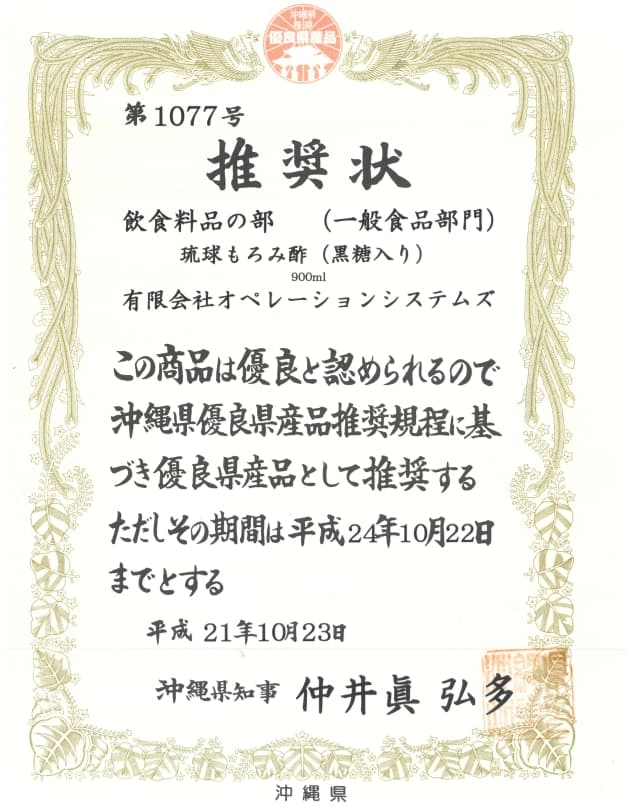 沖縄県
推奨
優良県産品
第1077号
推奨状
飲食料品の部 （一般食品部門）
琉球もろみ酢（黒糖入り）
900ml
有限会社オペレーションシステムズ
この商品は優良と認められるので
沖縄県優良県産品推奨規程に基
づき優良県産品として推奨する
ただしその期間は平成24年10月22日
までとする
平成 21年10月23日
沖縄県知事 仲井眞 弘多
沖縄県